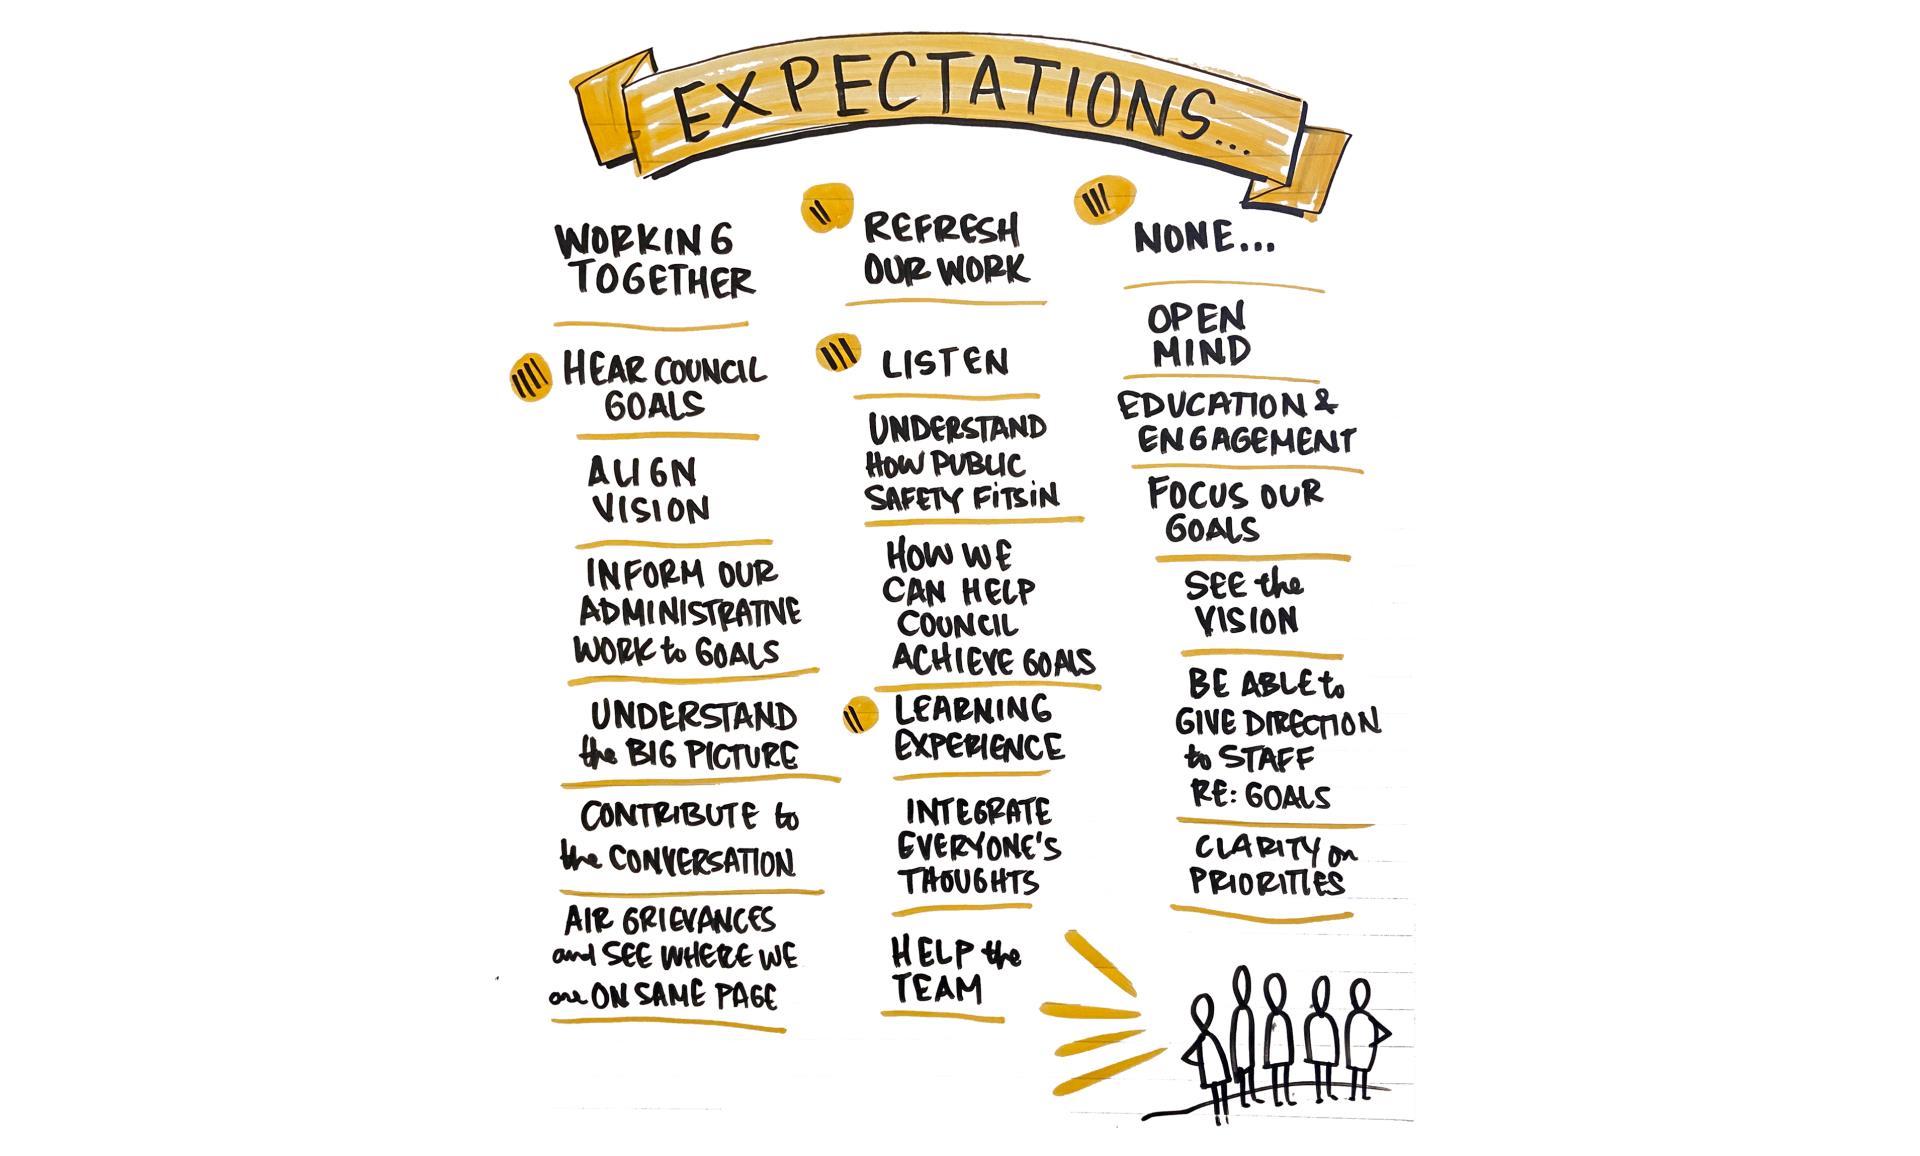 EXPECTATIONS...
WORKING
TOGETHER
HEAR COUNCIL
GOALS
ALIGN
VISION
INFORM OUR
ADMINISTRATIVE
WORK to GOALS
UNDERSTAND
the BIG PICTURE
CONTRIBUTE to
the CONVERSATION
AIR GRIEVANCES
and SEE WHERE WE
are ON SAME PAGE
REFRESH
OUR WORK
LISTEN
UNDERSTAND
HOW PUBLIC
SAFETY FiTS iN
HOW WE
CAN HELP
COUNCIL
ACHIEVE GOALS
LEARNING
EXPERIENCE
INTEGRATE
EVERYONE'S
THOUGHTS
HELP the
TEAM
NONE...
OPEN
MIND
EDUCATION &
ENGAGEMENT
FOCUS OUR
GOALS
SEE the
VISION
BE ABLE to
GIVE DIRECTION
to STAFF
RE: GOALS
CLARITY on
PRIORITIES